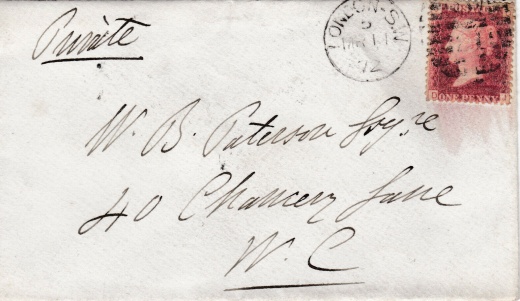 Private
LONDON-S.W
5
72
ONE PENNY
W. B. Paterson Esqre
40 Chancery Lane
W. C